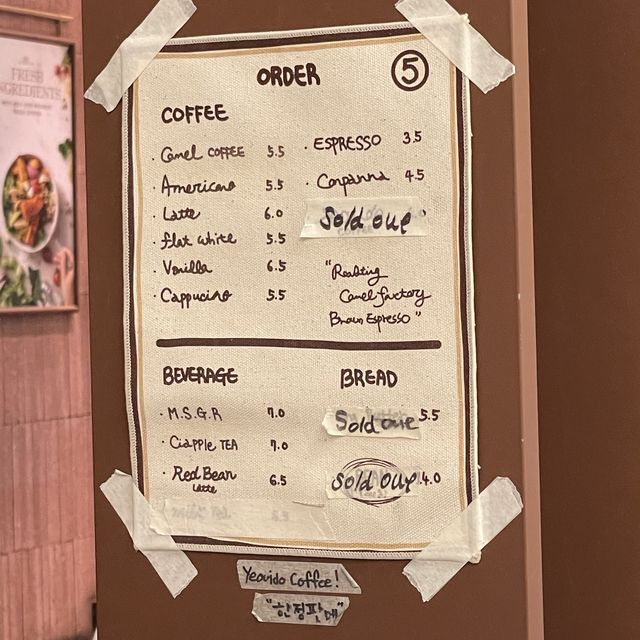 FRESH
INGREDIENTS
ORDER
5
COFFEE
· Camel COFFEE 5.5
· Americano 5.5
· Latte 6.0
· flat white 5.5
· Vanilla 6.5
· Cappucino 5.5
· ESPRESSO 3.5
· Conpanna 4.5
Sold out
"Roasting
Camel factory
Brown Espresso"
BEVERAGE
· M.S.G.R 7.0
· Ciapple TEA 7.0
· Red Bean 6.5
Latte
BREAD
Sold out 5.5
Sold out 4.0
Yeouido Coffee!
"한정판매"